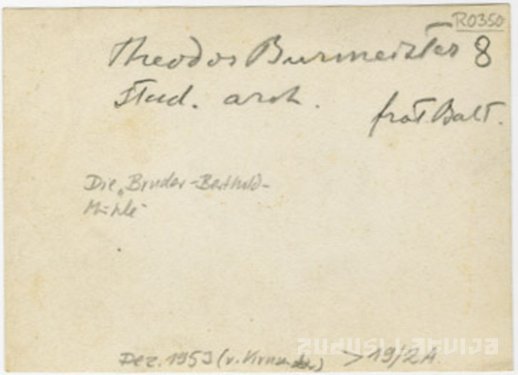 R0350
Theodor Burmeister 8
Stud. arch.
frat Balt.
Die „Bruder-Berthold-
Mühle"
Dez. 1953 (v. > 19/2A
zudusilatvija